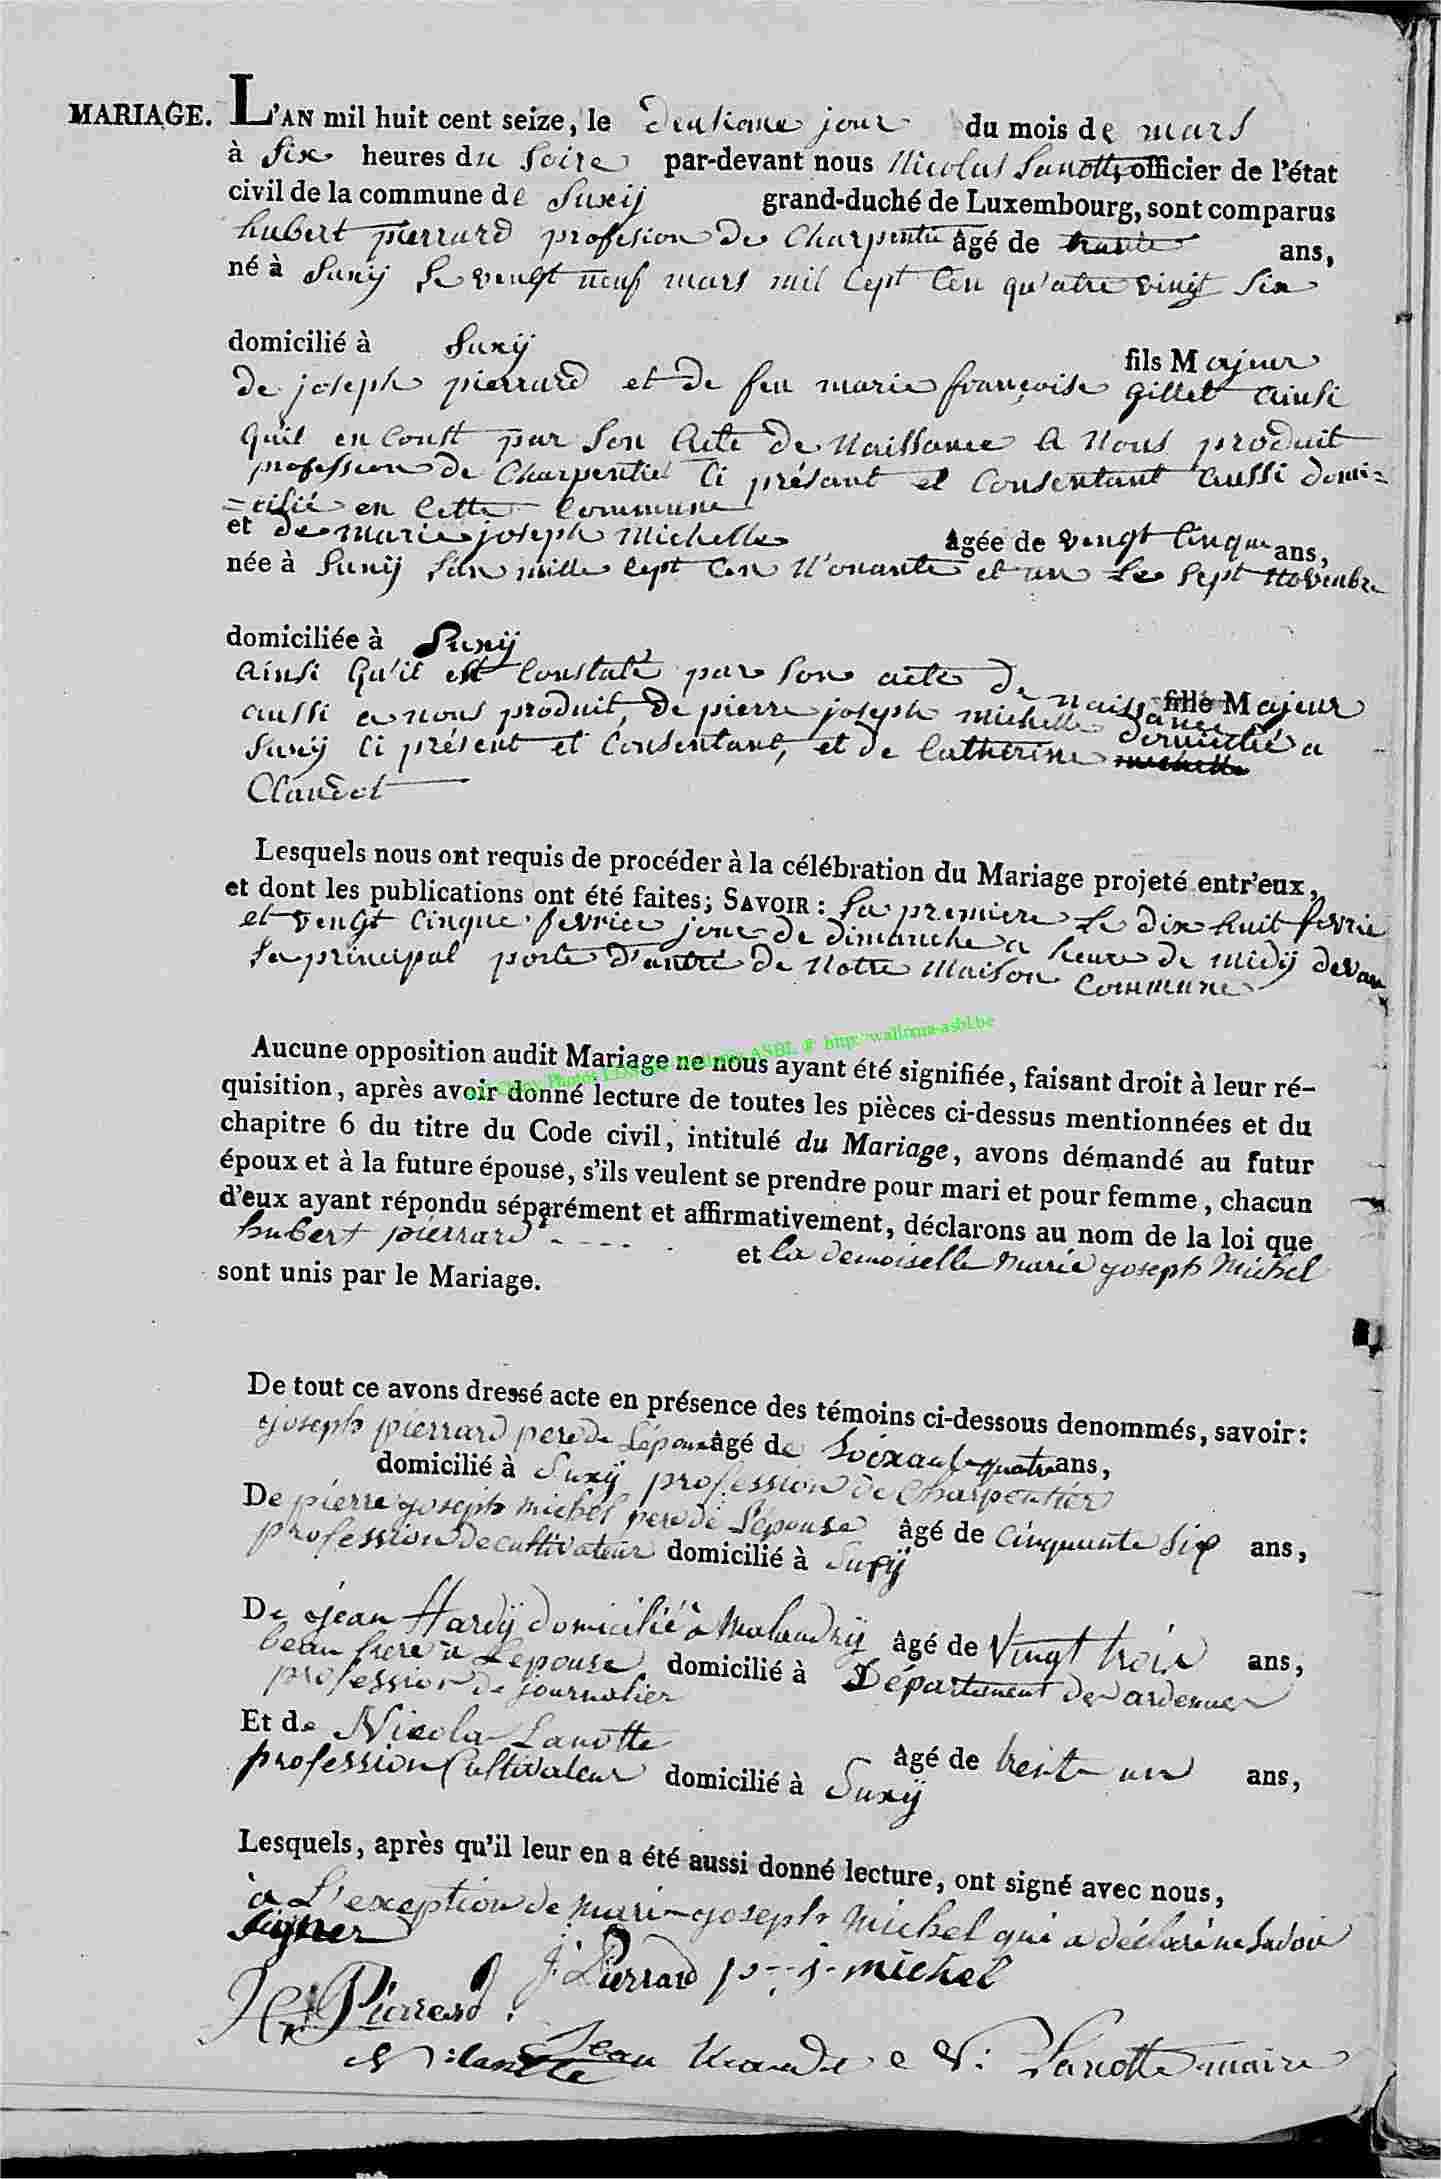 MARIAGE. L'AN mil huit cent seize, le deuxieme jour du mois de mars
à six heures du soire par-devant nous Nicolas Lanotte, officier de l'état
civil de la commune de Suxÿ grand-duché de Luxembourg, sont comparus
hubert pierrard profesion de Charpentié âgé de trente ans,
né à Suxÿ le vengt neuf mars mil Cept Cen qu'atre vingt Six
domicilié à Suxÿ fils Majeur
de joseph pierrard et de feu marie françoise gillet ainsi
quil en Constt par Son Acte de Naissance a Nous produit
profession de Charpentié Ci présant et Consentant aussi domi=
=cilié en Cette Commune
et de marie joseph Michelle âgée de vengt Cinque ans,
née à Suxÿ Lan mille Cept Cen N'onante et un Le Sept Novenbre
domiciliée à Suxÿ
ainsi qu'il est Constaté par Son acte de naissance fille Majeur
aussi a nous produit, de pierre joseph michelle domicilié a
Suxÿ Ci présent et Consentant, et de Catherine michelle
Claudot
Lesquels nous ont requis de procéder à la célébration du Mariage projeté entr'eux,
et dont les publications ont été faites; SAVOIR: La premiere Le dix huit fevrie
et vengt Cinque fevrier jour de dimanche a heure de midÿ devan
La principal porte d'antré de Notte Maison Commune
Aucune opposition audit Mariage ne nous ayant été signifiée, faisant droit à leur ré-
quisition, après avoir donné lecture de toutes les pièces ci-dessus mentionnées et du
chapitre 6 du titre du Code civil, intitulé du Mariage, avons démandé au futur
époux et à la future épouse, s'ils veulent se prendre pour mari et pour femme, chacun
d'eux ayant répondu séparément et affirmativement, déclarons au nom de la loi que
hubert pierrard et la demoiselle marie joseph Michel
sont unis par le Mariage.
De tout ce avons dressé acte en présence des témoins ci-dessous denommés, savoir:
joseph pierrard pere de L'époux âgé de Soixante quatre ans,
domicilié à Suxÿ profession de Charpentier
De pierre joseph michel pere de L'épouse âgé de cinquante Six ans,
profession de cultivateur domicilié à Suxÿ
De jean Hardÿ domicilié à Malandrÿ âgé de Vingt trois ans,
beau frere a Lepouse domicilié à Département des ardennes
profession de journalier
Et de Nicola Lanotte âgé de trente un ans,
profession Cultivateur domicilié à Suxÿ
Lesquels, après qu'il leur en a été aussi donné lecture, ont signé avec nous,
à L'exception de marie joseph Michel qui a déclaré ne Savoir
Signer
J. Pierrard p. j. michel
H Pierrard
N: Lanotte Jean N: Lanotte maire